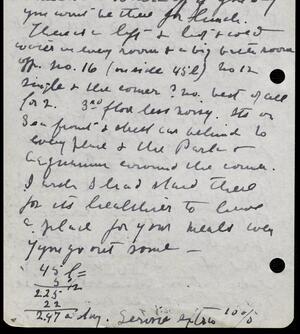 you wont be there for lunch.
There is a lift & hot & cold
water in every room & a big bath room
off. No. 16 (on side 45£) no 12
single & the corner ? 20. best of all
for 2. 3rd floor less noisy. Its on
Sea front & street car behind to
every place & the Park &
Aquarium around the corner.
I wish I had stayed there
for its healthier to have
a place for your meals even
if you go out some —
45 £ =
5
225
22
247 a day. Service extra 10%